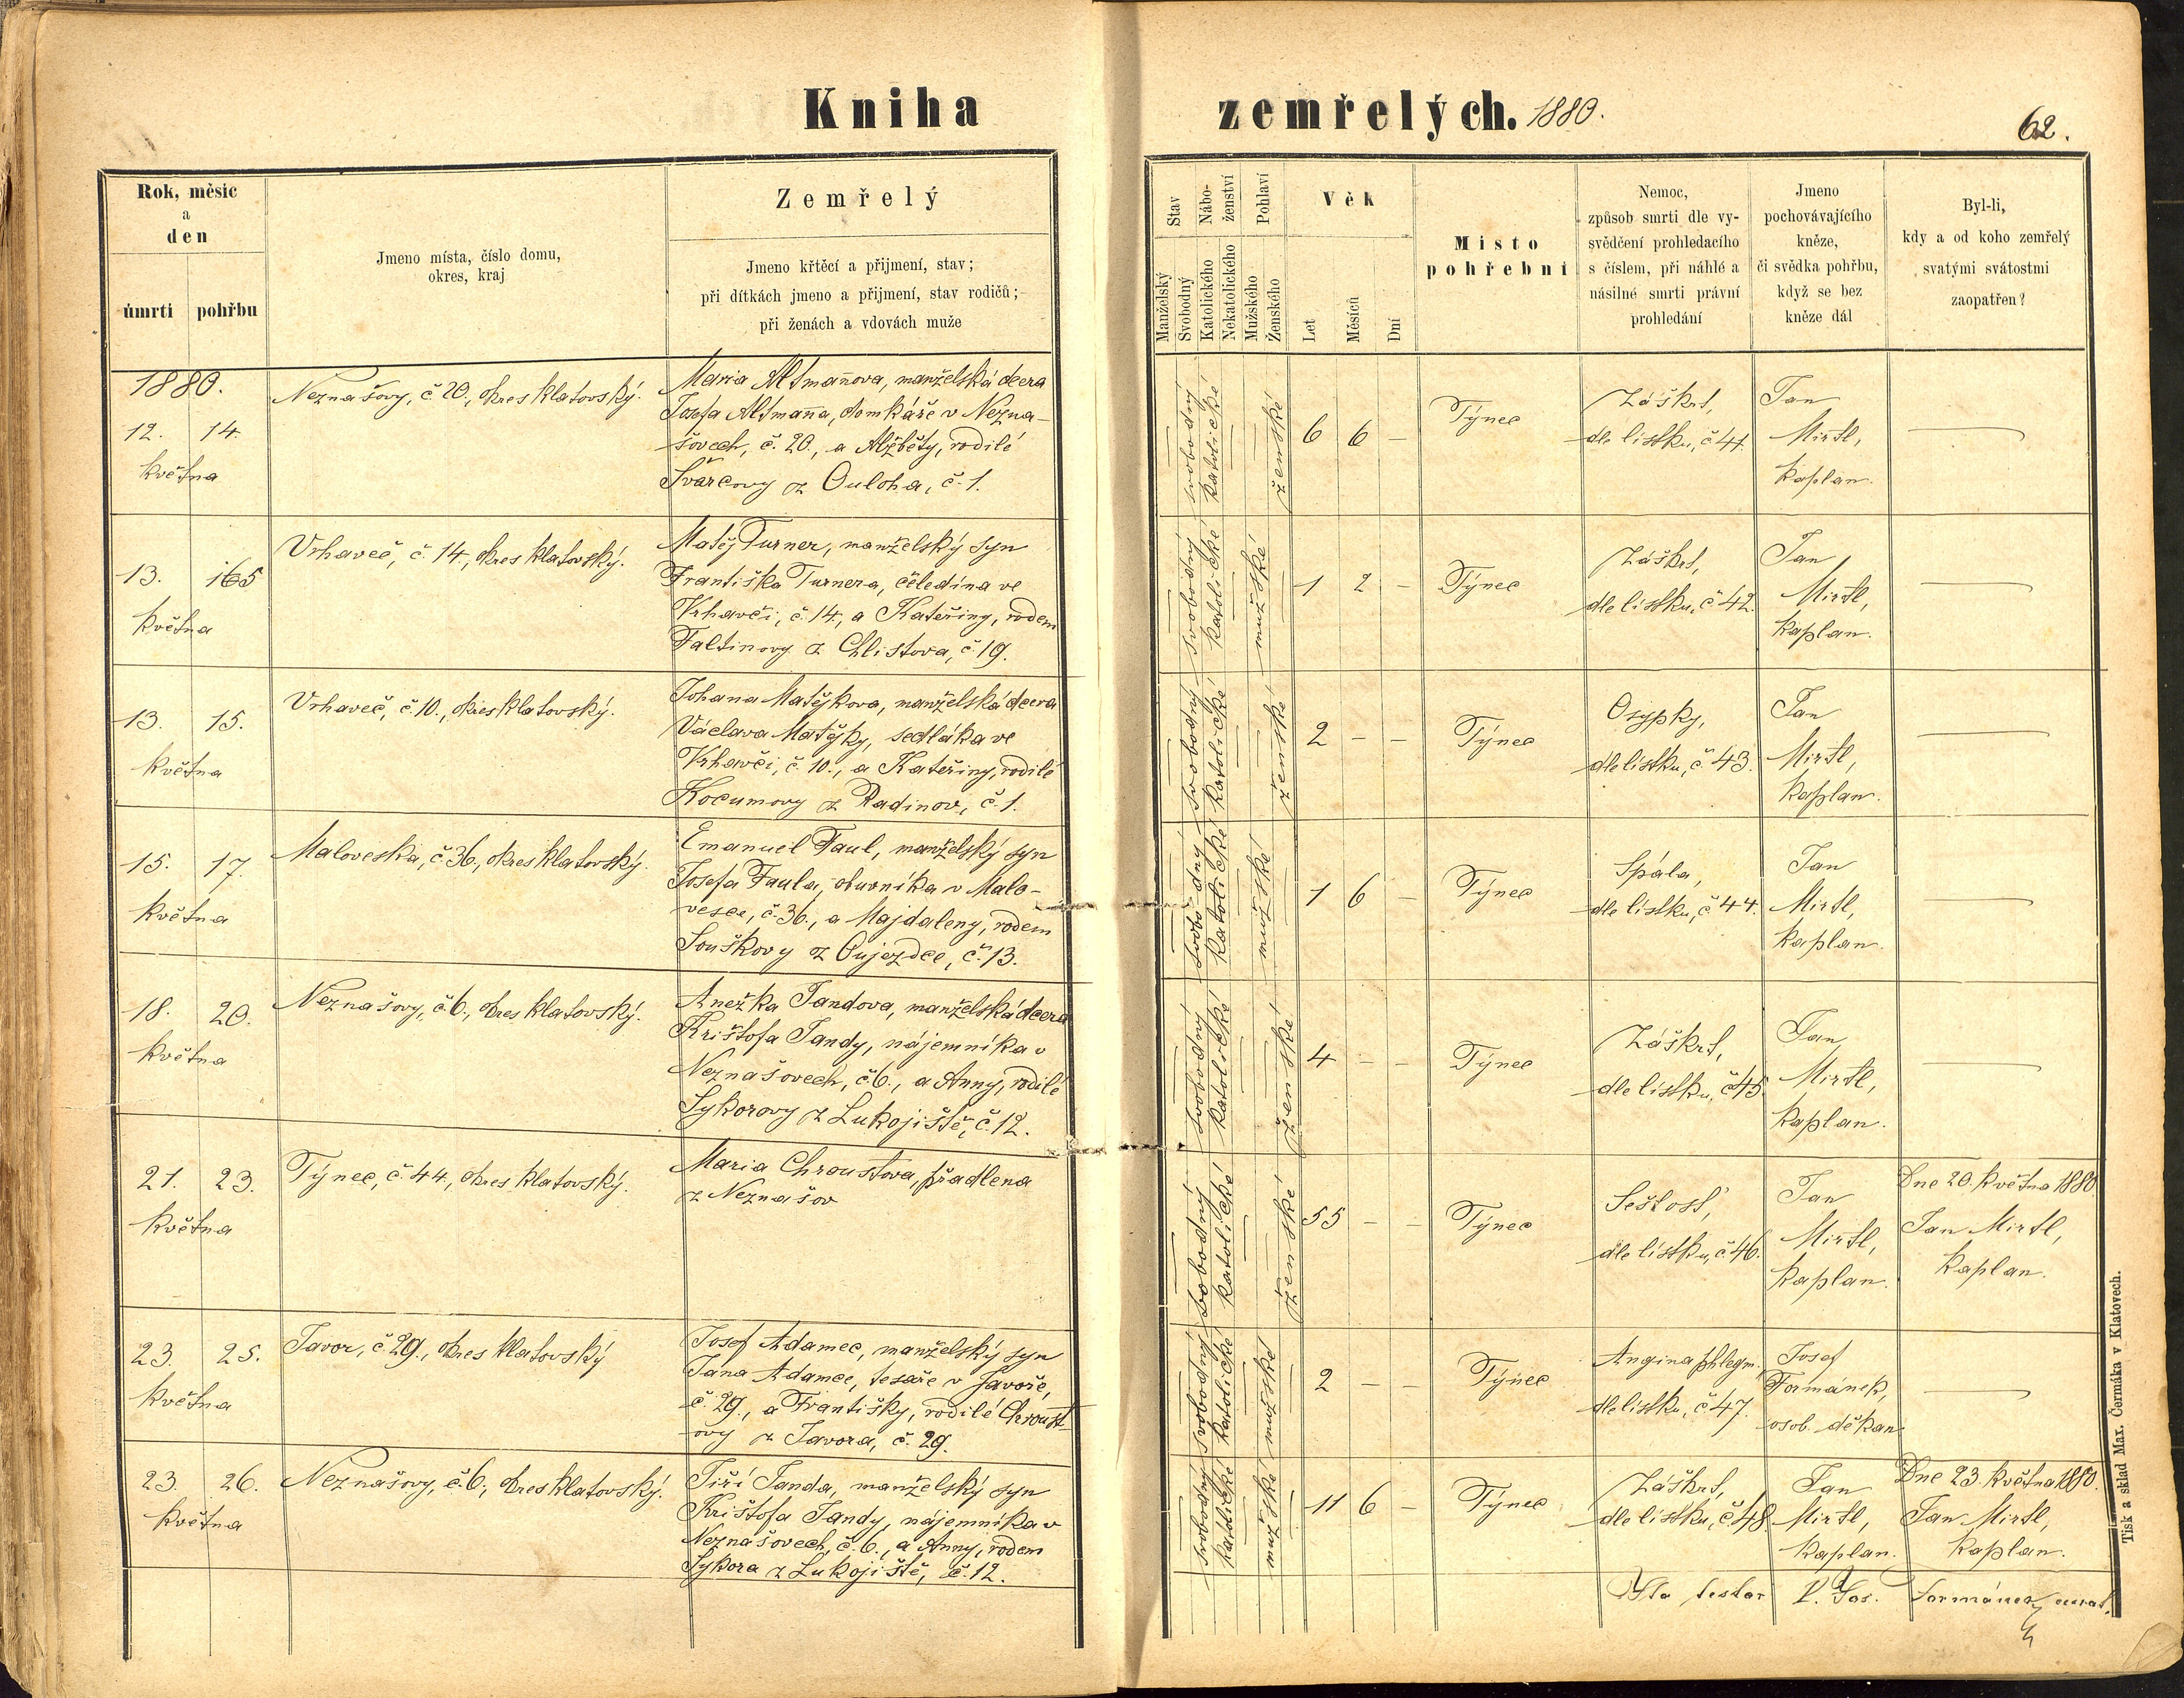 Kniha zemřelých. 1880.
62.
Rok, měsíc
a
den
úmrtí pohřbu
Jmeno místa, číslo domu,
okres, kraj
Zemřelý
Jmeno křtěcí a přijmení, stav;
při dítkách jmeno a přijmení, stav rodičů;
při ženách a vdovách muže
Stav
Manželský
Svobodný
Nábo-
ženství
Katolického
Nekatolického
Pohlaví
Mužského
Ženského
Věk
Let
Měsíců
Dní
Místo
pohřební
Nemoc,
způsob smrti dle vy-
svědčení prohledacího
s číslem, při náhlé a
násilné smrti právní
prohledání
Jmeno
pochovávajícího
kněze,
či svědka pohřbu,
když se bez
kněze dál
Byl-li,
kdy a od koho zemřelý
svatými svátostmi
zaopatřen?
1880.
12. 14.
května
Neznašovy, č 20., okres klatovský.
Maria Altmañova, manželská dcera
Josefa Altmaña, domkáře v Nezna-
šovech, č. 20., a Alžběty, rodilé
Švarcovy z Ouloha, č. 1.
svobodný
katolické
ženské
6 6 –
Týnec
Záškrt,
dle lístku, č 41.
Jan
Mirtl,
kaplan.
13. 165
května
Vrhaveč, č. 14., okres klatovský.
Matěj Turner, manželský syn
Františka Turnera, čeledína ve
Vrhavči, č. 14., a Kateřiny, rodem
Faltinovy z Chlistova, č. 19.
svobodný
katolické
mužské
1 2 –
Týnec
Záškrt,
dle lístku, č 42.
Jan
Mirtl,
kaplan.
13. 15.
května
Vrhaveč, č. 10., okres klatovský.
Johana Matějkova, manželská dcera
Václava Matějky, sedláka ve
Vrhavči, č. 10., a Kateřiny, rodilé
Kocumovy z Radinov, č. 1.
svobodný
katolické
ženské
2 – –
Týnec
Osypky,
dle lístku, č. 43.
Jan
Mirtl,
kaplan.
15. 17.
května
Maloveska, č. 36., okres klatovský.
Emanuel Faul, manželský syn
Josefa Faula, obuvníka v Malo-
vesce, č. 36., a Majdaleny, rodem
Souškovy z Oujezdce, č. 13.
svobodný
katolické
mužské
1 6 –
Týnec
Spála,
dle lístku, č 44.
Jan
Mirtl,
kaplan.
18. 20.
května
Neznašovy, č. 6., okres klatovský.
Anežka Jandova, manželská dcera
Krištofa Jandy, nájemníka v
Neznašovech, č. 6., a Anny, rodilé
Sykorovy z Lukojiště, č. 12.
svobodný
katolické
ženské
4 – –
Týnec
Záškrt,
dle lístku, č 45.
Jan
Mirtl,
kaplan.
21. 23.
května
Týnec, č. 44., okres klatovský.
Maria Chroustova, přadlena
z Neznašov
svobodný
katolické
ženské
55 – –
Týnec
Sešlosť,
dle lístku, č. 46.
Jan
Mirtl,
kaplan.
Dne 20. května 1880
Jan Mirtl,
kaplan.
23. 25.
května
Javor, č. 29., okres klatovský
Josef Adamec, manželský syn
Jana Adamce, tesaře v Javoře,
č. 29., a Františky, rodilé Chroust-
ovy z Javora, č. 29.
svobodný
katolické
mužské
2 – –
Týnec
Angina phlegm.
dle lístku, č. 47.
Josef
Formánek,
osob. děkan
23. 26.
května
Neznašovy, č. 6., okres klatovský.
Jiří Janda, manželský syn
Krištofa Jandy, nájemníka v
Neznašovech, č. 6., a Anny, rodem
Sykora z Lukojiště, č. 12.
svobodný
katolické
mužské
11 6 –
Týnec
Záškrt,
dle lístku, č. 48.
Jan
Mirtl,
kaplan.
Dne 23. května 1880.
Jan Mirtl,
kaplan.
Ita testor P. Jos. Formánek,
Tisk a sklad Max. Čermáka v Klatovech.